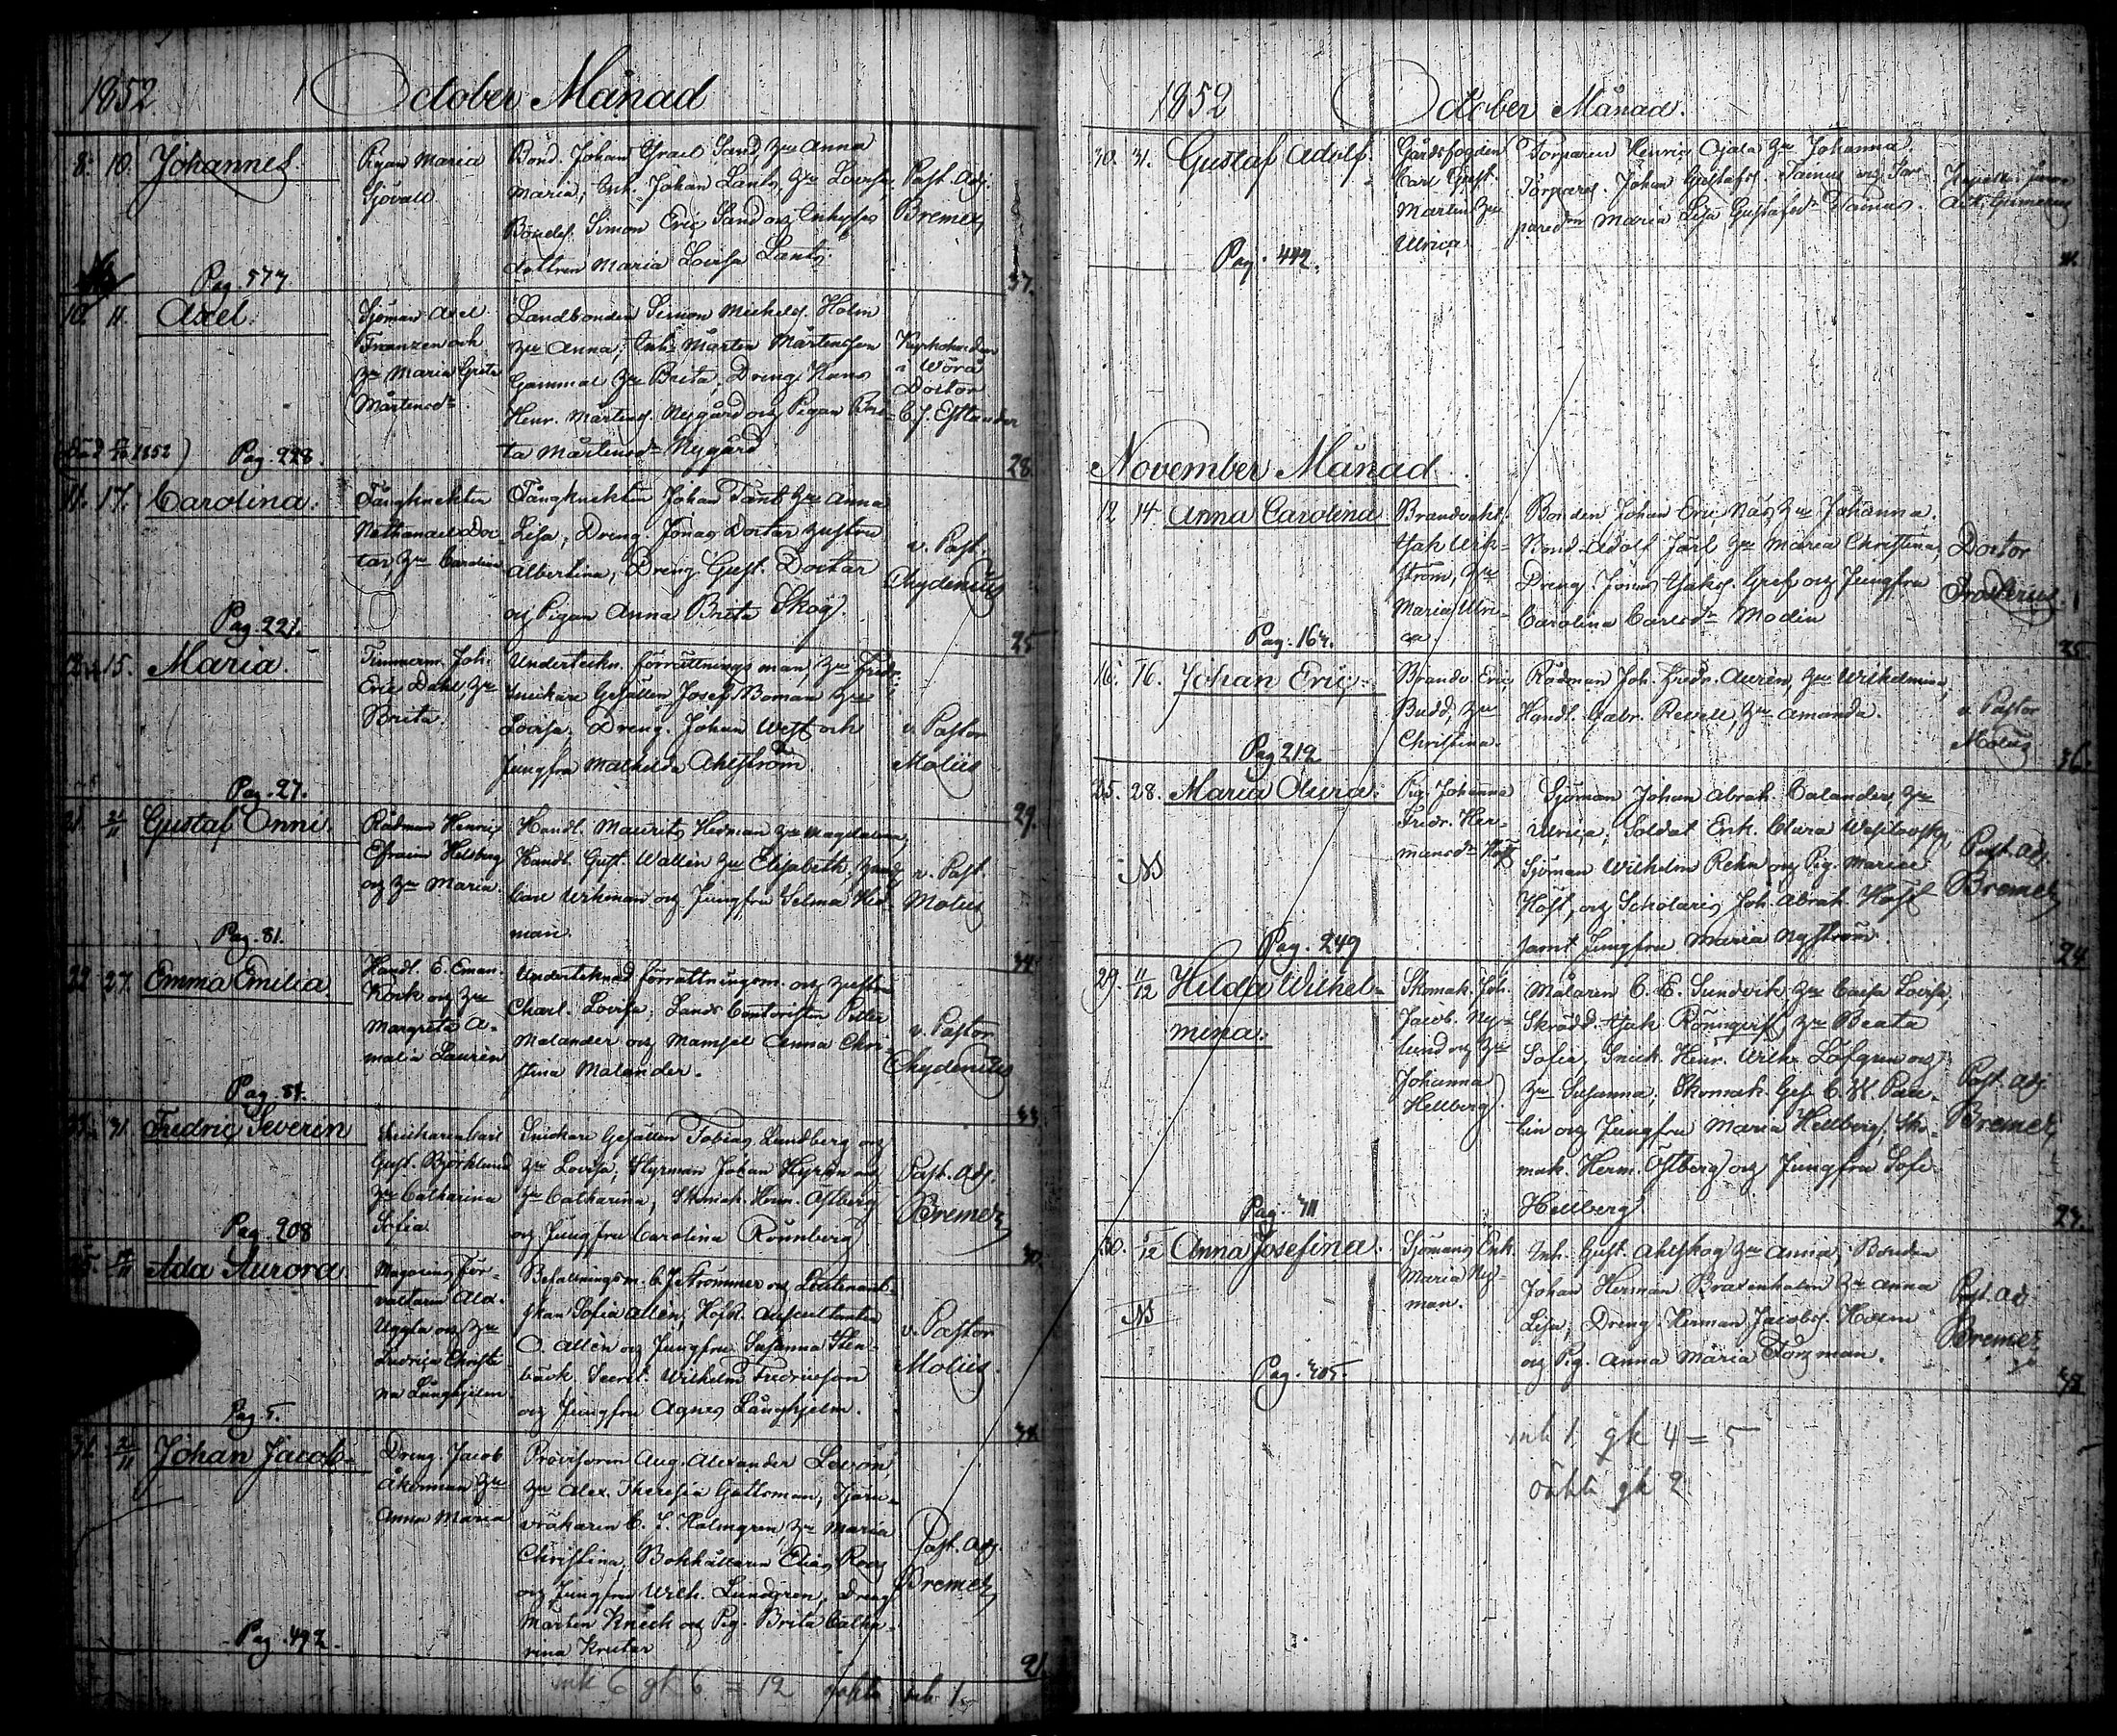 1852. October Månad
8. 10. Johannes.
Pigan Maria
Sjövall
Bond. Johan Israel Sand, hu Anna
Maria; Enk. Johan Lants, hu Lovisa,
Bondes. Simon Eric Sand och
dottren Maria Lovisa Lants.
Past. Adj.
Bremer
Pag. 577
37.
10. 11. Axel.
Sjöman Axel
Franzen och
hu Maria Greta
Mårtensdr
Landbonden Simon Michels. Holm
hu Anna; Inh. Mårten Mårtensson
Gammal hu Brita, Dreng Hans
Henr. Mårtens. Nygård och Pigan Bri-
ta Mårtensdr Nygård
Kyrkoherden
i Wörå
Doctor
C. J. Estlander
(död 1852)
Pag. 228.
28.
11. 17. Carolina.
Fångknekten
Nathanael Doc
tar, hu Carolin
Fångknekten Johan Fant hu Anna
Lisa, Dreng. Jonas Doctar hustru
Albertina; Dreng Gust. Doctar
och Pigan Anna Brita Skog.
v. Past.
Chydenius
Pag. 221.
25
15. Maria.
Timmerm. Joh.
Eric Dahl, hu
Brita.
Underteckn. förrättningsman, hu
Snickare Gesällen Josef Boman hu
Lovisa; Dreng. Johan West och
Jungfru Mathilda Ahlström
v. Pastor
Molius
Pag. 27.
29.
21. 21/11 Gustaf Onni.
Rådman Henric
Efraim Helsberg
och hu Maria.
Handl. Maurits Hedman hu Magdalena,
Handl. Gust. Wallén hu Elisabeth;
Carl Urhman och Jungfru Selma Hed-
man.
v. Past.
Molius
Pag. 81.
34.
22 27. Emma Emilia.
Handl. E. Eman.
Kock och hu
Margreta A-
malia Laurén
Undertecknad förrättningsm. och hustru
Charl. Lovisa; Lands Contoristen Petter
Malander och Mamsel Anna Chri-
stina Malander.
v. Pastor
Chydenius
Pag. 84.
33.
31 Fredric Severin
Snickaren Carl
Gust. Björklund
hu Catharina
Sofia
Snickare Gesällen Tobias Lundberg och
hu Lovisa; Styrman Johan Hyrén och
hu Catharina; Skomak. Herm. Östberg
och Jungfru Carolina Rönnberg
Past. Adj.
Bremer
Pag. 208
30.
25. Ada Aurora.
Magasins För-
valtaren Alex.
Uggla och hu
Fredrica Christi-
na Långhjelm.
Befallningsm. C. J. Strömmer och
skan Sofia Allén; Hofr. Auscultanten
O. Allén och Jungfru Susanna Sten-
bäck. Secret. Wilhelm Fredricson
och Jungfru Agnes Långhjelm.
v. Pastor
Molius.
Pag 5.
31. 2/11 Johan Jacob.
Dreng. Jacob
Åkerman hu
Anna Maria
Provisoren Aug. Alexander Levon,
hu Alex. Theresia Gottsman; Tjäru-
vräkaren C. L. Holmgren, hu Maria
Christina; Bokhållaren Elias Roos
och Jungfru Wilh. Lundgren; Dreng
Mårten Knäck och Pig. Brita Catha-
rina Krutar
Past. Adj.
Bremer
Pag. 492.
21.
mk 6 gk 6 = 12 oäkta mk 1.
1852 October Månad.
30. 31. Gustaf Adolf.
Gårdsfogden
Carl Gust.
Martin hu
Ulrica
Torparen Henric Ojala hu Johanna.
Torpares. Johan Gustafs. Tainus och Tor
paredr Maria Lisa Gustafsdr Tainus.
Pag. 442.
November Månad
12 14. Anna Carolina
Brandvakt.
Isak Urk-
ström, hu
Maria Ulri-
ca.
Bonden Johan Eric Näs hu Johanna.
Bond. Adolf Jarl hu Maria Christina,
Drengs. Jonas Isaks. Gref och Jungfru
Carolina Carlsdr Modén
Doctor
Frosterus.
Pag. 164.
35.
16. 16. Johan Eric.
Brandv. Eric
Budd, hu
Christina.
Rådman Joh. Fredr. Aurén, hu Wilhelmina,
Handl. Gabr. Revell, hu Amanda.
v. Pastor
Molius
Pag 212
36.
25. 28. Maria Olivia.
Pig. Johanna
Fredr. Her-
mansdr Höst
Sjöman Johan Abrah. Calander hu
Ulrica; Soldat Enk. Clara Wasilovsky
Sjöman Wilhelm Rehn och Pig. Maria
Höst, och Scholaris Joh. Abrah. Höst
samt Jungfru Maria Nyström.
Past. Adj.
Bremer
NS
Pag. 249
24
29. 11/12 Hilda Wilhel-
mina.
Skomak. Joh.
Jacob Ny-
lund och hu
Johanna
Hellberg
Målaren C. E. Sundvik hu Caisa Lovisa,
Skrädd. Isak Rönnqvist, hu Beata
Sofia; Snick. Henr. Wilh. Löfgren och
hu Susanna; Skomak. Ges. C. H. Pau-
lin och Jungfru Maria Hellberg; Sko-
mak. Herm. Östberg och Jungfru Sofi
Hellberg.
Past. Adj.
Bremer
30. 1/12 Anna Josefina.
Sjömans Enk.
Maria Ny-
man.
Inh. Gust. Ahlskog hu Anna; Bonden
Johan Herman Braxenholm hu Anna
Lisa; Dreng. Herman Jacobs. Holm
och Pig. Anna Maria Forsman.
Past. Ad
Bremer
NS
Pag. 405.
mk 1 gk 4 = 5
oäkta gk 2